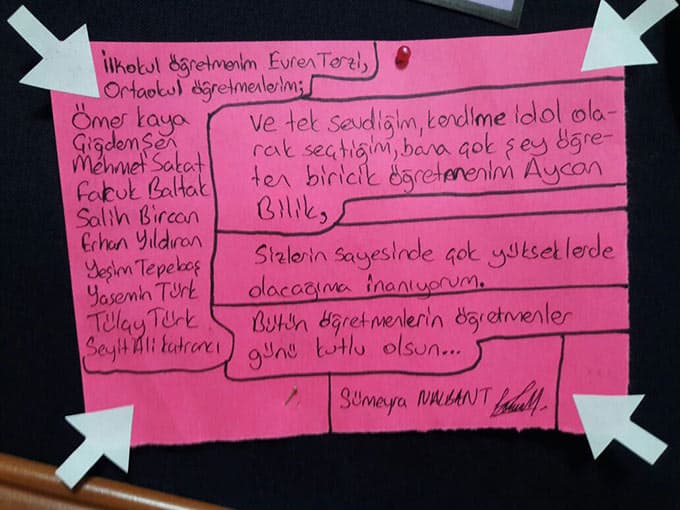 İlkokul öğretmenim Evren Terzi,
Ortaokul öğretmenlerim;
Ömer kaya
Çiğdem Şen
Mehmet Sakat
Faruk Baltak
Salih Bircan
Erhan Yıldıran
Yeşim Tepebaş
Yasemin Türk
Tülay Türk
Seyit Ali Katrancı
Ve tek sevdiğim, kendime idol ola-
rak seçtiğim, bana çok şey öğre-
ten biricik öğretmenim Aycan
Bilik,
Sizlerin sayesinde çok yükseklerde
olacağıma inanıyorum.
Bütün öğretmenlerin öğretmenler
günü kutlu olsun...
Sümeyra NALBANT